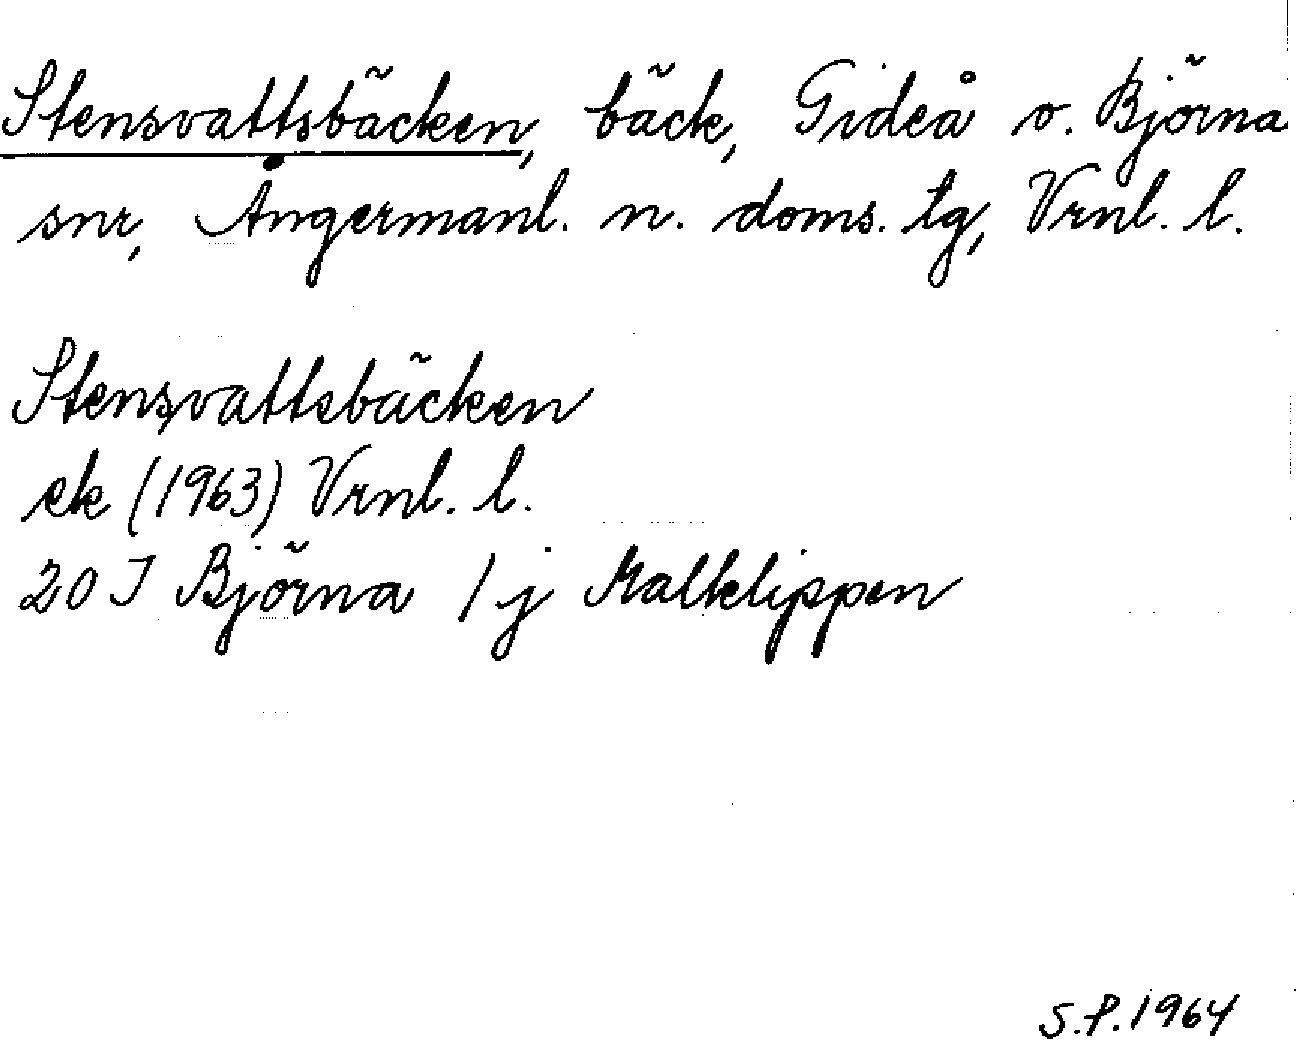 Stensvattsbäcken, bäck, Gideå o. Björna
snr, Ångermanl. n. doms. tg, Vrnl. l.
Stensvattsbäcken
ek (1963) Vrnl. l.
20 I Björna 1 j Malklippen
S.P. 1964